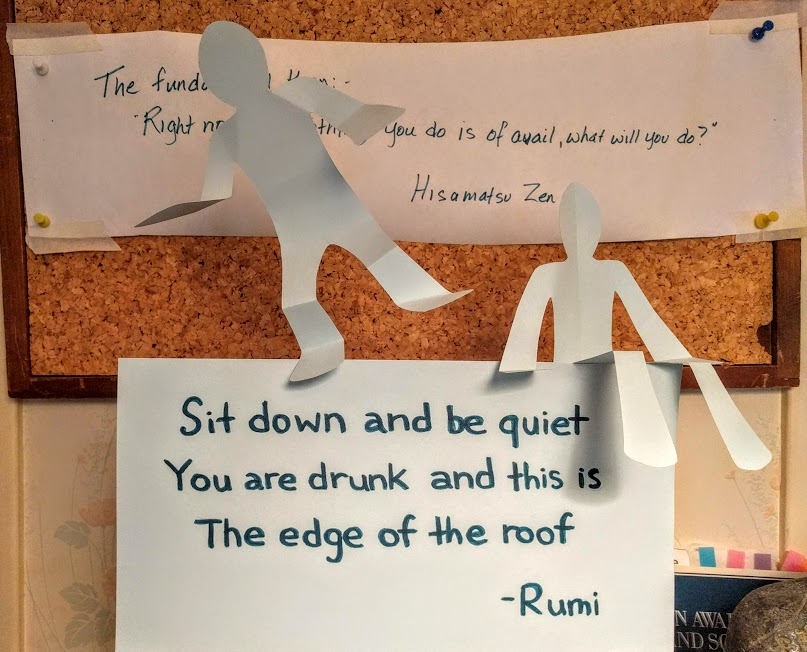 The
"Right you do is of avail, what will you do?"
Hisamatsu Zen
Sit down and be quiet
You are drunk and this is
The edge of the roof
-Rumi